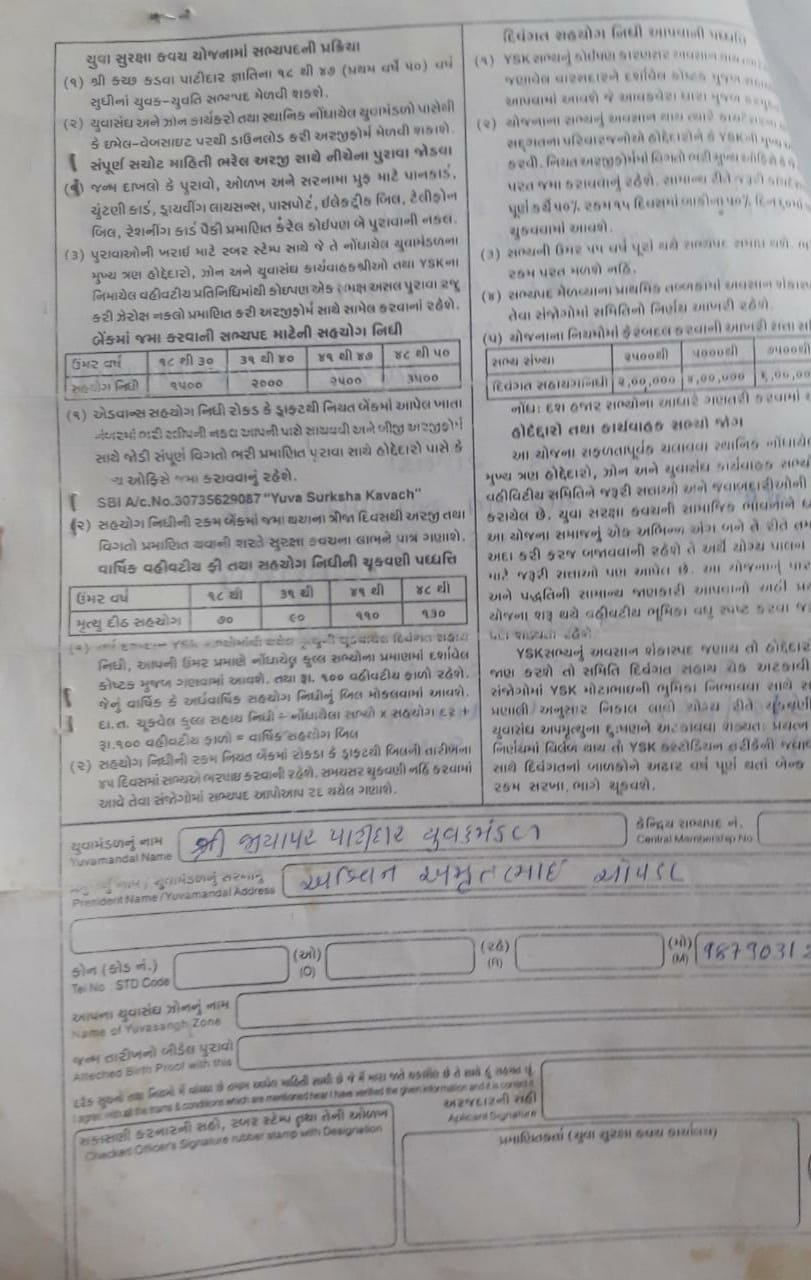 યુવા સુરક્ષા કવચ યોજનામાં સભ્યપદની પ્રક્રિયા
(૧) શ્રી કચ્છ કડવા પાટીદાર જ્ઞાતિના ૧૮ થી ૪૭ (પ્રથમ વર્ષે ૫૦) વર્ષ
સુધીનાં યુવક-યુવતિ સભ્યપદ મેળવી શકશે.
(૨) યુવાસંઘ અને ઝોન કાર્યકરો તથા સ્થાનિક નોંધાયેલ યુવામંડળો પાસેથી
કે ઇમેલ-વેબસાઇટ પરથી ડાઉનલોડ કરી અરજીફોર્મ મેળવી શકાશે.
સંપૂર્ણ સચોટ માહિતી ભરેલ અરજી સાથે નીચેના પુરાવા જોડવા
જન્મ દાખલો કે પુરાવો, ઓળખ અને સરનામા પ્રુફ માટે પાનકાર્ડ,
ચુંટણી કાર્ડ, ડ્રાયવીંગ લાયસન્સ, પાસપોર્ટ, ઇલેક્ટ્રીક બિલ, ટેલીફોન
બિલ, રેશનીંગ કાર્ડ પૈકી પ્રમાણિત કરેલ કોઇપણ બે પુરાવાની નકલ.
(૩) પુરાવાઓની ખરાઇ માટે રબર સ્ટેમ્પ સાથે જે તે નોંધાયેલ યુવામંડળના
મુખ્ય ત્રણ હોદ્દેદારો, ઝોન અને યુવાસંઘ કાર્યવાહકશ્રીઓ તથા YSKના
નિમાયેલ વહીવટીય પ્રતિનિધિમાંથી કોઇપણ એક સમક્ષ અસલ પુરાવા રજૂ
કરી ઝેરોક્ષ નકલો પ્રમાણિત કરી અરજીફોર્મ સાથે સામેલ કરવાનાં રહેશે.
બેંકમાં જમા કરવાની સભ્યપદ માટેની સહયોગ નિધી
ઉંમર વર્ષ ૧૮ થી ૩૦ ૩૧ થી ૪૦ ૪૧ થી ૪૭ ૪૮ થી ૫૦
સહયોગ નિધી ૧૫૦૦ ૨૦૦૦ ૨૫૦૦ ૩૫૦૦
(૧) એડવાન્સ સહયોગ નિધી રોકડ કે ડ્રાફટથી નિયત બેંકમાં આપેલ ખાતા
નંબરમાં ભરી સ્લીપની નકલ આપની પાસે સાચવવી અને બીજી અરજીફોર્મ
સાથે જોડી સંપૂર્ણ વિગતો ભરી પ્રમાણિત પુરાવા સાથે હોદ્દેદારો પાસે કે
ઓફિસે જમા કરાવવાનું રહેશે.
SBI A/c.No.30735629087 "Yuva Surksha Kavach"
(૨) સહયોગ નિધીની રકમ બેંકમાં જમા થયાના ત્રીજા દિવસથી અરજી તથા
વિગતો પ્રમાણિત થવાની શરતે સુરક્ષા કવચના લાભને પાત્ર ગણાશે.
વાર્ષિક વહીવટીય ફી તથા સહયોગ નિધીની ચૂકવણી પધ્ધતિ
ઉંમર વર્ષ ૧૮ થી ૩૧ થી ૪૧ થી ૪૮ થી
મૃત્યુ દીઠ સહયોગ ૭૦ ૯૦ ૧૧૦ ૧૩૦
નિધી, આપની ઉંમર પ્રમાણે નોંધાયેલ કુલ્લ સભ્યોના પ્રમાણમાં દર્શાવેલ
કોષ્ટક મુજબ ગણવામાં આવશે. તથા રૂા. ૧૦૦ વહીવટીય ફાળો રહેશે.
જેનું વાર્ષિક કે અર્ધવાર્ષિક સહયોગ નિધીનું બિલ મોકલવામાં આવશે.
દા.ત. ચૂકવેલ કુલ્લ સહાય નિધી ÷ નોંધાયેલા સભ્યો x સહયોગ દર +
રૂા.૧૦૦ વહીવટીય ફાળો = વાર્ષિક સહયોગ બિલ
(૨) સહયોગ નિધીની રકમ નિયત બેંકમાં રોકડા કે ડ્રાફટથી બિલની તારીખના
૪૫ દિવસમાં સભ્યએ ભરપાઇ કરવાની રહેશે. સમયસર ચૂકવણી નહિ કરવામાં
આવે તેવા સંજોગોમાં સભ્યપદ આપોઆપ રદ થયેલ ગણાશે.
દિવંગત સહયોગ નિધી આપવાની પધ્ધતિ
(૧) YSK સભ્યનું કોઇપણ કારણસર અવસાન થાય
જણાવેલ વારસદારને દર્શાવેલ કોષ્ટક મુજબ
આપવામાં આવશે જે આવકવેરા ધારા મુજબ
(૨) યોજનાના સભ્યનું અવસાન થાય ત્યારે
સદ્દગતના પરિવારજનોએ હોદ્દેદારોને કે YSKની
કરવી. નિયત અરજીફોર્મમાં વિગતો ભરી
પરત જમા કરાવવાનું રહેશે. સામાન્ય રીતે જરૂરી
પૂર્ણ કર્યે ૫૦% રકમ ૧૫ દિવસમાં બાકીના ૫૦%
ચુકવવામાં આવશે.
(૩) સભ્યની ઉંમર ૫૫ વર્ષ પૂરાં થયે સભ્યપદ સમાપ્ત થશે.
રકમ પરત મળશે નહિ.
(૪) સભ્યપદ મેળવ્યાના પ્રાથમિક તબક્કામાં અવસાન
તેવા સંજોગોમાં સમિતિનો નિર્ણય આખરી રહેશે.
(૫) યોજનાના નિયમોમાં ફેરબદલ કરવાની આખરી સત્તા
સભ્ય સંખ્યા ૨૫૦૦થી ૫૦૦૦થી ૭૫૦૦થી
દિવંગત સહાયનિધી ૨,૦૦,૦૦૦ ૪,૦૦,૦૦૦
નોંધ: દશ હજાર સભ્યોના આધારે ગણતરી કરવામાં
હોદ્દેદારો તથા કાર્યવાહક સભ્યો જોગ
આ યોજના સફળતાપૂર્વક ચલાવવા સ્થાનિક
મુખ્ય ત્રણ હોદ્દેદારો, ઝોન અને યુવાસંઘ કાર્યવાહક
વહિવટીય સમિતિને જરૂરી સત્તાઓ અને જવાબદારીઓની
કરાયેલ છે. યુવા સુરક્ષા કવચની સામાજિક ભાવનાને
આ યોજના સમાજનું એક અભિન્ન અંગ બને તે રીતે
અદા કરી ફરજ બજાવવાની રહેશે તે અર્થે યોગ્ય પાલન
માટે જરૂરી સત્તાઓ પણ આપેલ છે. આ યોજનાનું
અને પદ્ધતિની સામાન્ય જાણકારી આપવાનો અહીં
યોજના શરૂ થયે વહીવટીય ભૂમિકા વધુ સ્પષ્ટ કરવા
YSKસભ્યનું અવસાન શંકાસ્પદ જણાય તો
જાણ કરશે તો સમિતિ દિવંગત સહાય ચેક અટકાવી
સંજોગોમાં YSK મોટાભાઇની ભૂમિકા નિભાવવા સાથે
પ્રણાલી અનુસાર નિકાલ લાવી યોગ્ય રીતે ચુકવણી
યુવાસંઘ અપમૃત્યુના દુઃષણને અટકાવવા શક્યતઃ પ્રયત્ન
નિર્ણયમાં વિલંબ થાય તો YSK કસ્ટોડિયન તરીકેની
સાથે દિવંગતનાં બાળકોને અઢાર વર્ષ પૂર્ણ થતાં બેન્ક
રકમ સરખા ભાગે ચૂકવશે.
યુવામંડળનું નામ શ્રી જીયાપર પાટીદાર યુવકમંડળ
Yuvamandal Name
કેન્દ્રિય સભ્યપદ નં.
Central Membership No
યુવામંડળનું સરનામું અશ્વિન અમૃતભાઇ ચોપડા
President Name / Yuvamandal Address
ફોન (કોડ નં.) (ઓ) (રહે) (મો) 9879031
Tel No STD Code (O) (R) (M)
આપના યુવાસંઘ ઝોનનું નામ
Name of Yuvasangh Zone
જન્મ તારીખનો બીડેલ પુરાવો
Atteched Birth Proof with this
I agree with all the trams & conditions which are mentioned hear I have verified the given information and it is correct.
અરજદારની સહી
Aplicant Signature
ચકાસણી કરનારની સહી, રબર સ્ટેમ્પ તથા તેની ઓળખ
Checked Officer's Signature rubber stamp with Designation
પ્રમાણિતકર્તા (યુવા સુરક્ષા કવચ કાર્યાલય)